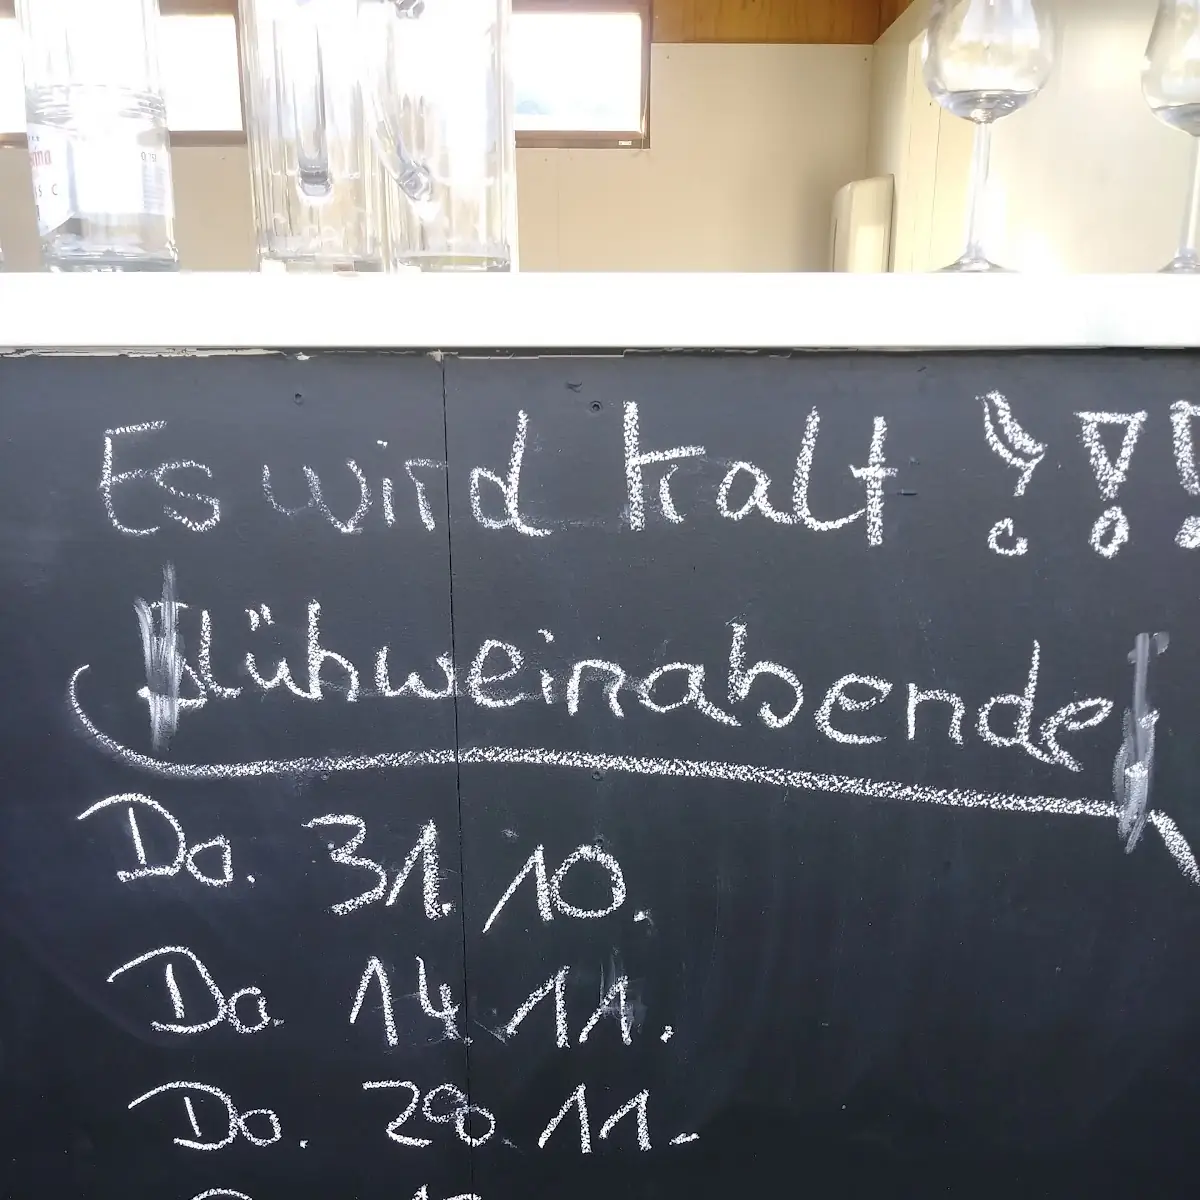 Es wird kalt ?!!
Glühweinabende
Do. 31. 10.
Do. 14. 11.
Do. 28. 11.